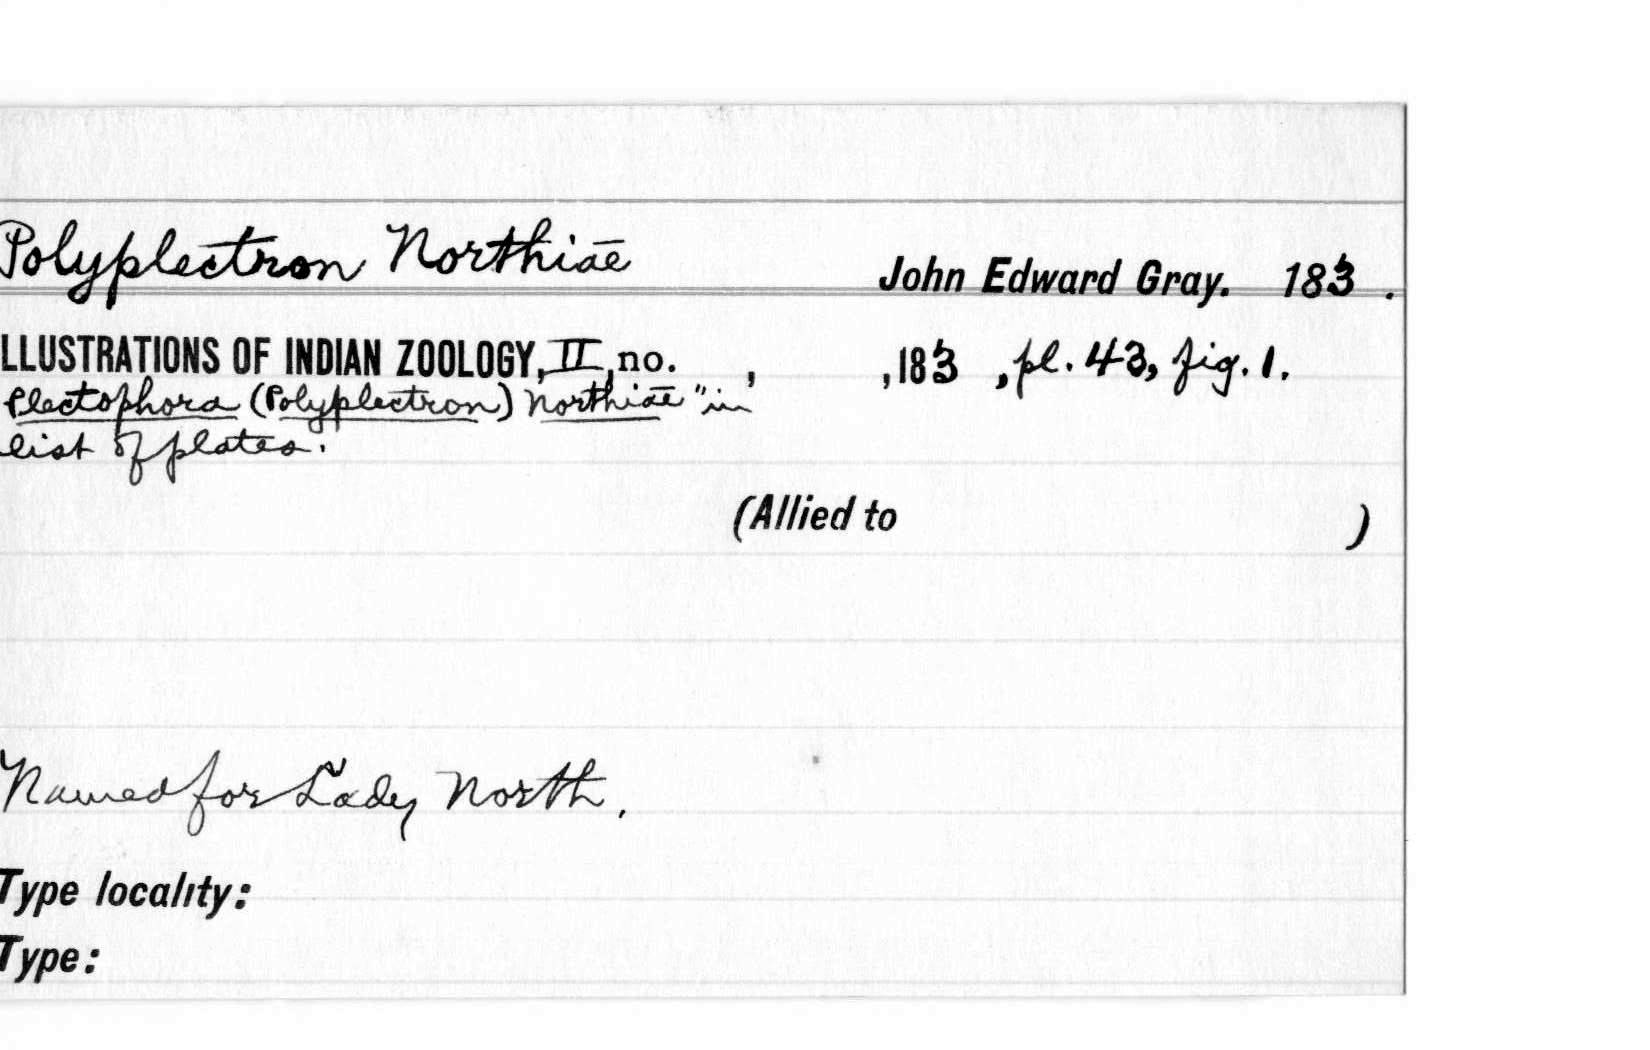 Polyplectron Northiae John Edward Gray. 183 .
LLUSTRATIONS OF INDIAN ZOOLOGY, II, no. , , 183 , pl. 43, fig. 1.
Plectophora (Polyplectron) Northiae" in
list of plates.
(Allied to )
Named for Lady North.
Type locality:
Type: